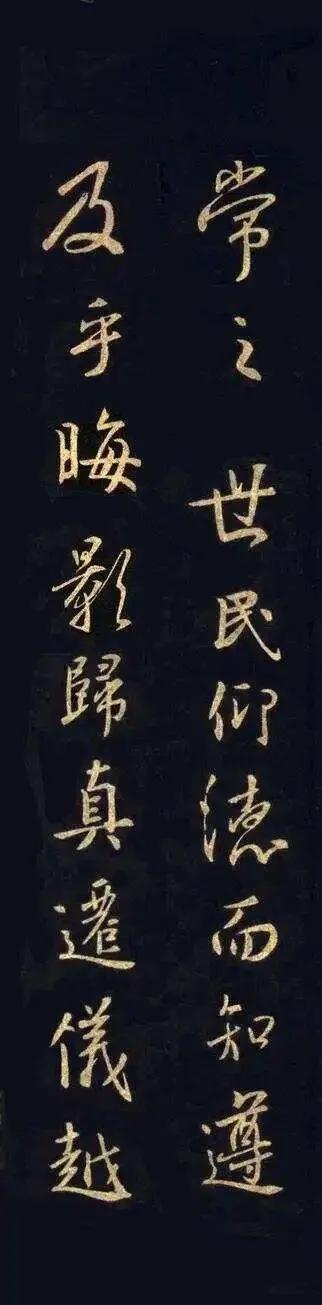 常之世民仰德而知遵
及乎晦影歸真遷儀越